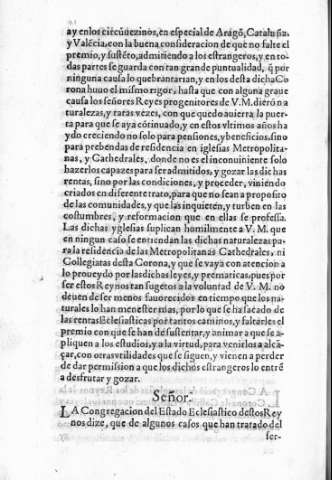 ay en los circũuezinos, en especial de Aragõ, Cataluña,
y Valẽcia, con la buena consideracion de que no falte el
premio, y sustẽto, admitiendo a los estrangeros, y en to-
das partes se guarda con tan gran de puntualidad, q̃ por
ninguna causa lo quebrantarian, y en los desta dicha Co
rona huuo el mismo rigor, hasta que con alguna graue
causa los señores Reyes progenitores de V.M. dierõ na
turalezas, y raras vezes, con que quedo auierta la puer-
ta para que se aya cõtinuado, y en estos vltimos años ha
ydo creciendo no solo para pensiones, y beneficios, sino
para prebendas de residencia en iglesias Metropolita-
nas, y Cathedrales, donde no es el inconuiniente solo
hazerlos capaces para ser admitidos, y gozar las dichas
rentas, sino por las condiciones, y proceder, viniendo
criados en diferente trato, para que no sean a proposito
de las comunidades, y que las inquieten, y turben en las
costumbres, y reformacion que en ellas se professa.
Las dichas yglesias suplican homilmente a V.M. que
en ningun caso se entiendan las dichas naturalezas pa-
ra la residencia de las Metropolitanas Cathedrales, ni
Collegiatas desta Corona, y que se vaya con atencion a
lo proueydo por las dichas leyes, y prematicas, pues por
ser estos Reynos tan sugetos a la voluntad de V.M. no
deuen de ser menos fauorecidos en tiempo que los na-
turales lo han menester mas, por lo que se ha sacado de
las rentas Eclesiasticas por tantos caminos, y faltarles el
premio con que se han de sustentar, y animar a que se a-
pliquen a los estudios, y a la virtud, para venirlos a alcã-
çar, con otras vtilidades que se siguen, y vienen a perder
de dar permission a que los dichos estrangeros lo entrẽ
a desfrutar y gozar.
Señor.
LA Congregacion del Estado Eclesiastico destos Rey
nos dize, que de algunos casos que han tratado del
ser-